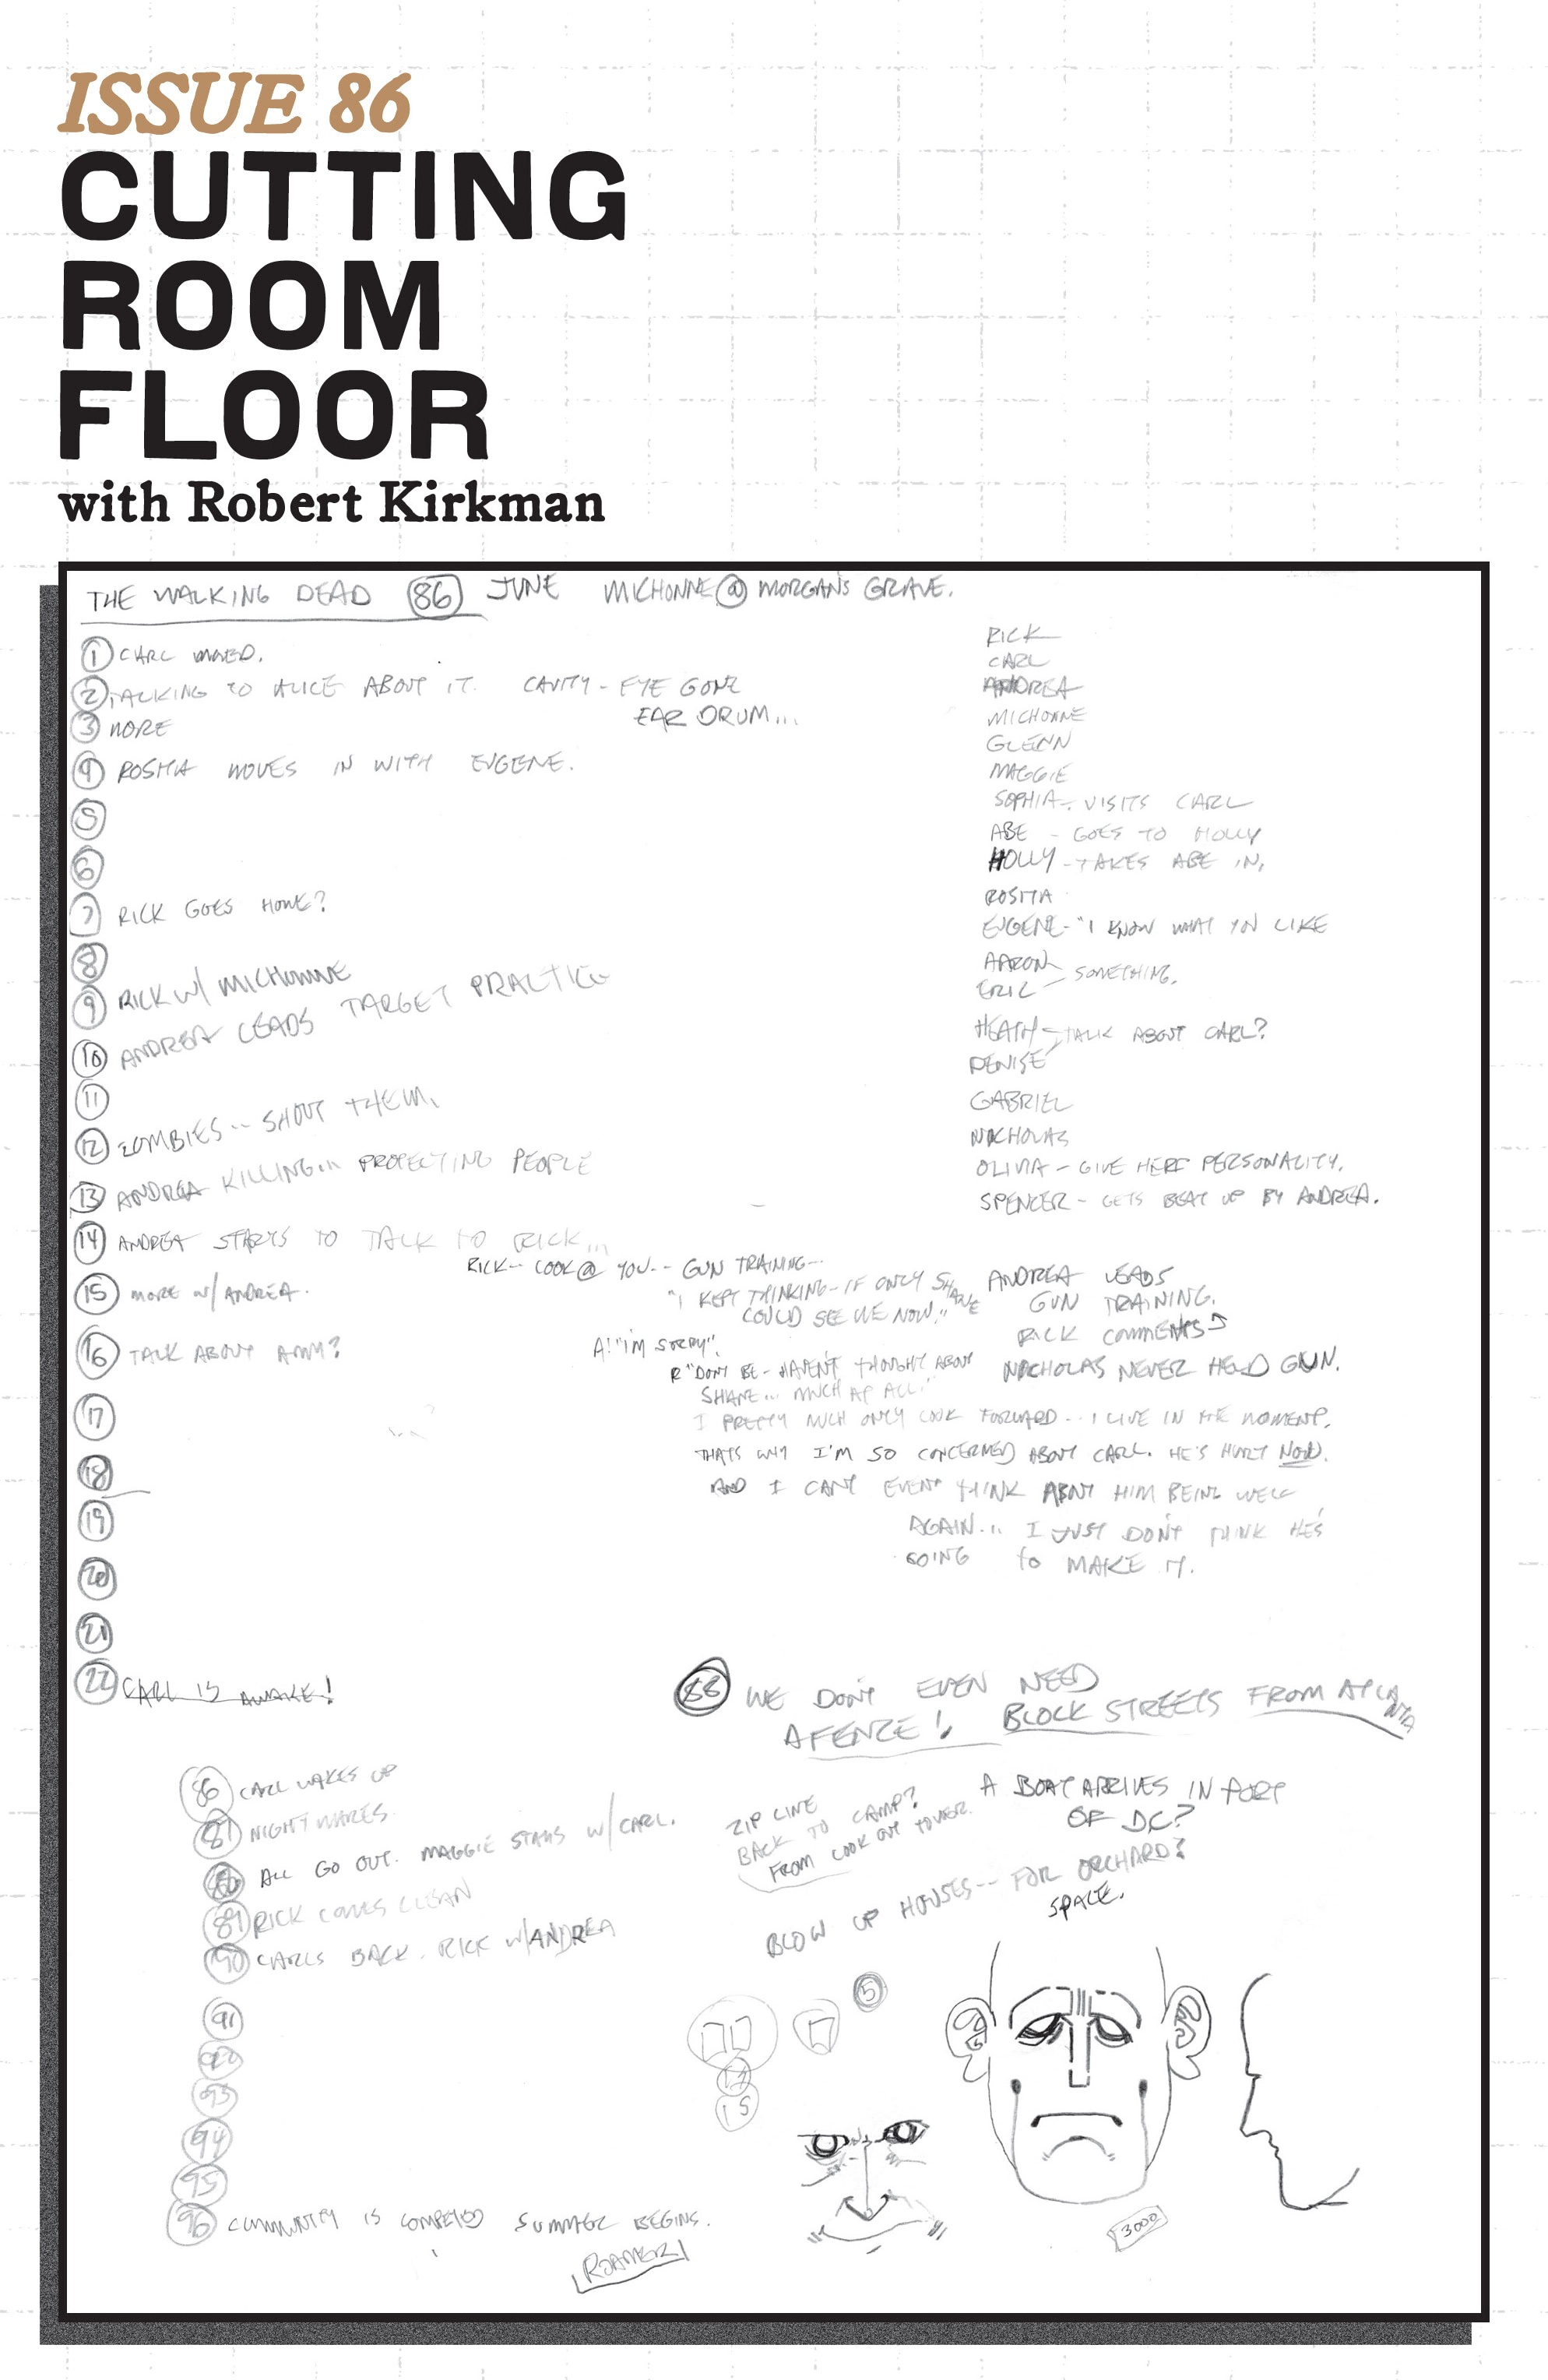 ISSUE 86
CUTTING
ROOM
FLOOR
with Robert Kirkman
THE WALKING DEAD 86 JUNE MICHONNE @ MORGAN'S GRAVE.
1 CARL
2 TALKING TO ALICE ABOUT IT. CAVITY - EYE GONE
EAR DRUM...
3 MORE
4 ROSITA MOVES IN WITH EUGENE.
5
6
7 RICK GOES HOME?
8
9 RICK W/ MICHONNE
10 ANDREA LEADS TARGET PRACTICE
11
12 ZOMBIES -- SHOOT THEM.
13 ANDREA KILLING... PROTECTING PEOPLE
14 ANDREA STARTS TO TALK TO RICK...
15 MORE W/ ANDREA.
16 TALK ABOUT AMY?
17
18
19
20
21
22 CARL IS AWAKE!
RICK
CARL
ANDREA
MICHONNE
GLENN
MAGGIE
SOPHIA - VISITS CARL
ABE - GOES TO HOLLY
HOLLY - TAKES ABE IN.
ROSITA
EUGENE - "I KNOW WHAT YOU LIKE
AARON
ERIC - SOMETHING.
HEATH - TALK ABOUT CARL?
DENISE
GABRIEL
NICHOLAS
OLIVIA - GIVE HER PERSONALITY.
SPENCER - GETS BEAT UP BY ANDREA.
RICK -- LOOK @ YOU -- GUN TRAINING --
"I KEPT THINKING - IF ONLY SHANE
COULD SEE ME NOW."
A: "I'M SORRY".
R "DON'T BE - HAVEN'T THOUGHT ABOUT
SHANE... MUCH AT ALL."
I PRETTY MUCH ONLY LOOK FORWARD... I LIVE IN THE MOMENT.
THATS WHY I'M SO CONCERNED ABOUT CARL. HE'S HURT NOW.
AND I CANT EVEN THINK ABOUT HIM BEING WELL
AGAIN... I JUST DON'T THINK HE'S
GOING TO MAKE IT.
ANDREA LEADS
GUN TRAINING.
RICK COMMENTS
NICHOLAS NEVER HELD GUN.
88 WE DON'T EVEN NEED
A FENCE! BLOCK STREETS FROM ATLANTA
86 CARL WAKES UP
87 NIGHTMARES.
88 ALL GO OUT. MAGGIE STAYS W/ CARL.
89 RICK COMES CLEAN
90 CARLS BACK. RICK W/ ANDREA
91
92
93
94
95
96 COMMUNITY IS COMPLETED SUMMER BEGINS.
ROAMER
ZIP LINE
BACK TO CAMP?
FROM LOOK OUT TOWER.
A BOAT ARRIVES IN PORT
OF DC?
BLOW UP HOUSES -- FOR ORCHARD?
SPACE.
5
15
3000